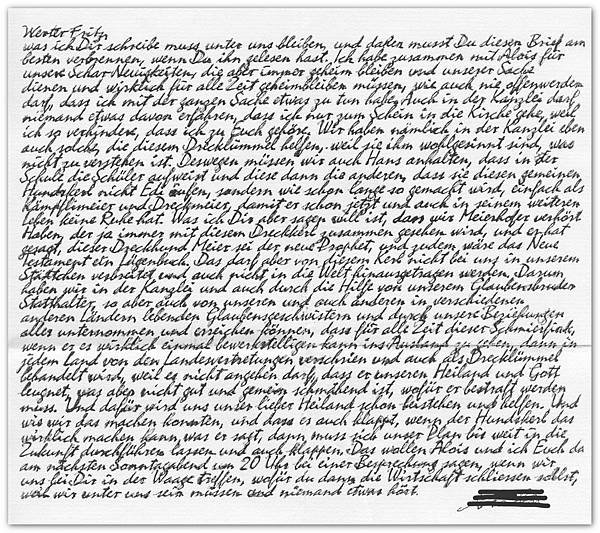 Werter Fritz,
was ich Dir schreibe muss unter uns bleiben, und daher musst Du diesem Brief am
besten verbrennen, wenn Du ihn gelesen hast. Ich habe zusammen mit Alois für
unsere Schar Neuigkeiten, die aber immer geheim bleiben und unserer Sache
dienen und wirklich für alle Zeit geheimbleiben müssen, wie auch nie offenwerden
darf, dass ich mit der ganzen Sache etwas zu tun habe. Auch in der Kanzlei darf
niemand etwas davon erfahren, dass ich nur zum Schein in die Kirche gehe, weil
ich so verhindere, dass ich zu Euch gehöre. Wir haben nämlich in der Kanzlei eben
auch solche, die diesem Drecklümmel helfen, weil sie ihm wohlgesinnt sind, was
nicht zu verstehen ist. Deswegen müssen wir auch Hans anhalten, dass in der
Schule die Schüler aufweist und diese dann die anderen, dass sie diesen gemeinen
Hundskerl nicht Edi rufen, sondern wie schon lange so gemacht wird, einfach als
Kämpflimeier und Dreckmeier, damit er schon jetzt und auch in seinem weiteren
Leben keine Ruhe hat. Was ich Dir aber sagen will ist, dass wir Meierhofer verhört
haben, der ja immer mit diesem Dreckkerl zusammen gesehen wird, und er hat
gesagt, dieser Dreckhund Meier sei der neue Prophet, und zudem wäre das Neue
Testament ein Lügenbuch. Das darf aber von diesem Kerl nicht bei uns in unserem
Städtchen verbreitet und auch nicht in die Welt hinausgetragen werden. Darum
haben wir in der Kanzlei und auch durch die Hilfe von unserem Glaubensbruder
Statthalter, so aber auch von unseren und auch anderen in verschiedenen
anderen Ländern lebenden Glaubensgeschwistern und durch unsere Beziehungen
alles unternommen und erreichen können, dass für alle Zeit dieser Schmierfink,
wenn er es wirklich einmal bewerkstelligen kann ins Ausland zu gehen, dann in
jedem Land von den Landesvertretungen verschrien und auch als Drecklümmel
behandelt wird, weil es nicht angehen darf, dass er unseren Heiland und Gott
leugnet, was aber nicht gut und gemein schmähend ist, wofür er bestraft werden
muss. Und dafür wird uns unser lieber Heiland schon beistehen und helfen. Und
wie wir das machen konnten, und dass es auch klappt, wenn der Hundskerl das
wirklich machen kann, was er sagt, dann muss sich unser Plan bis weit in die
Zukunft durchführen lassen und auch klappen. Das wollen Alois und ich Euch da
am nächsten Sonntagabend um 20 Uhr bei einer Besprechung sagen, wenn wir
uns bei Dir in der Waage treffen, wofür du dann die Wirtschaft schliessen sollst,
weil wir unter uns sein müssen und niemand etwas hört.